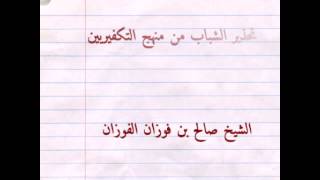 تحذير الشباب من منهج التكفيريين
الشيخ صالح بن فوزان الفوزان